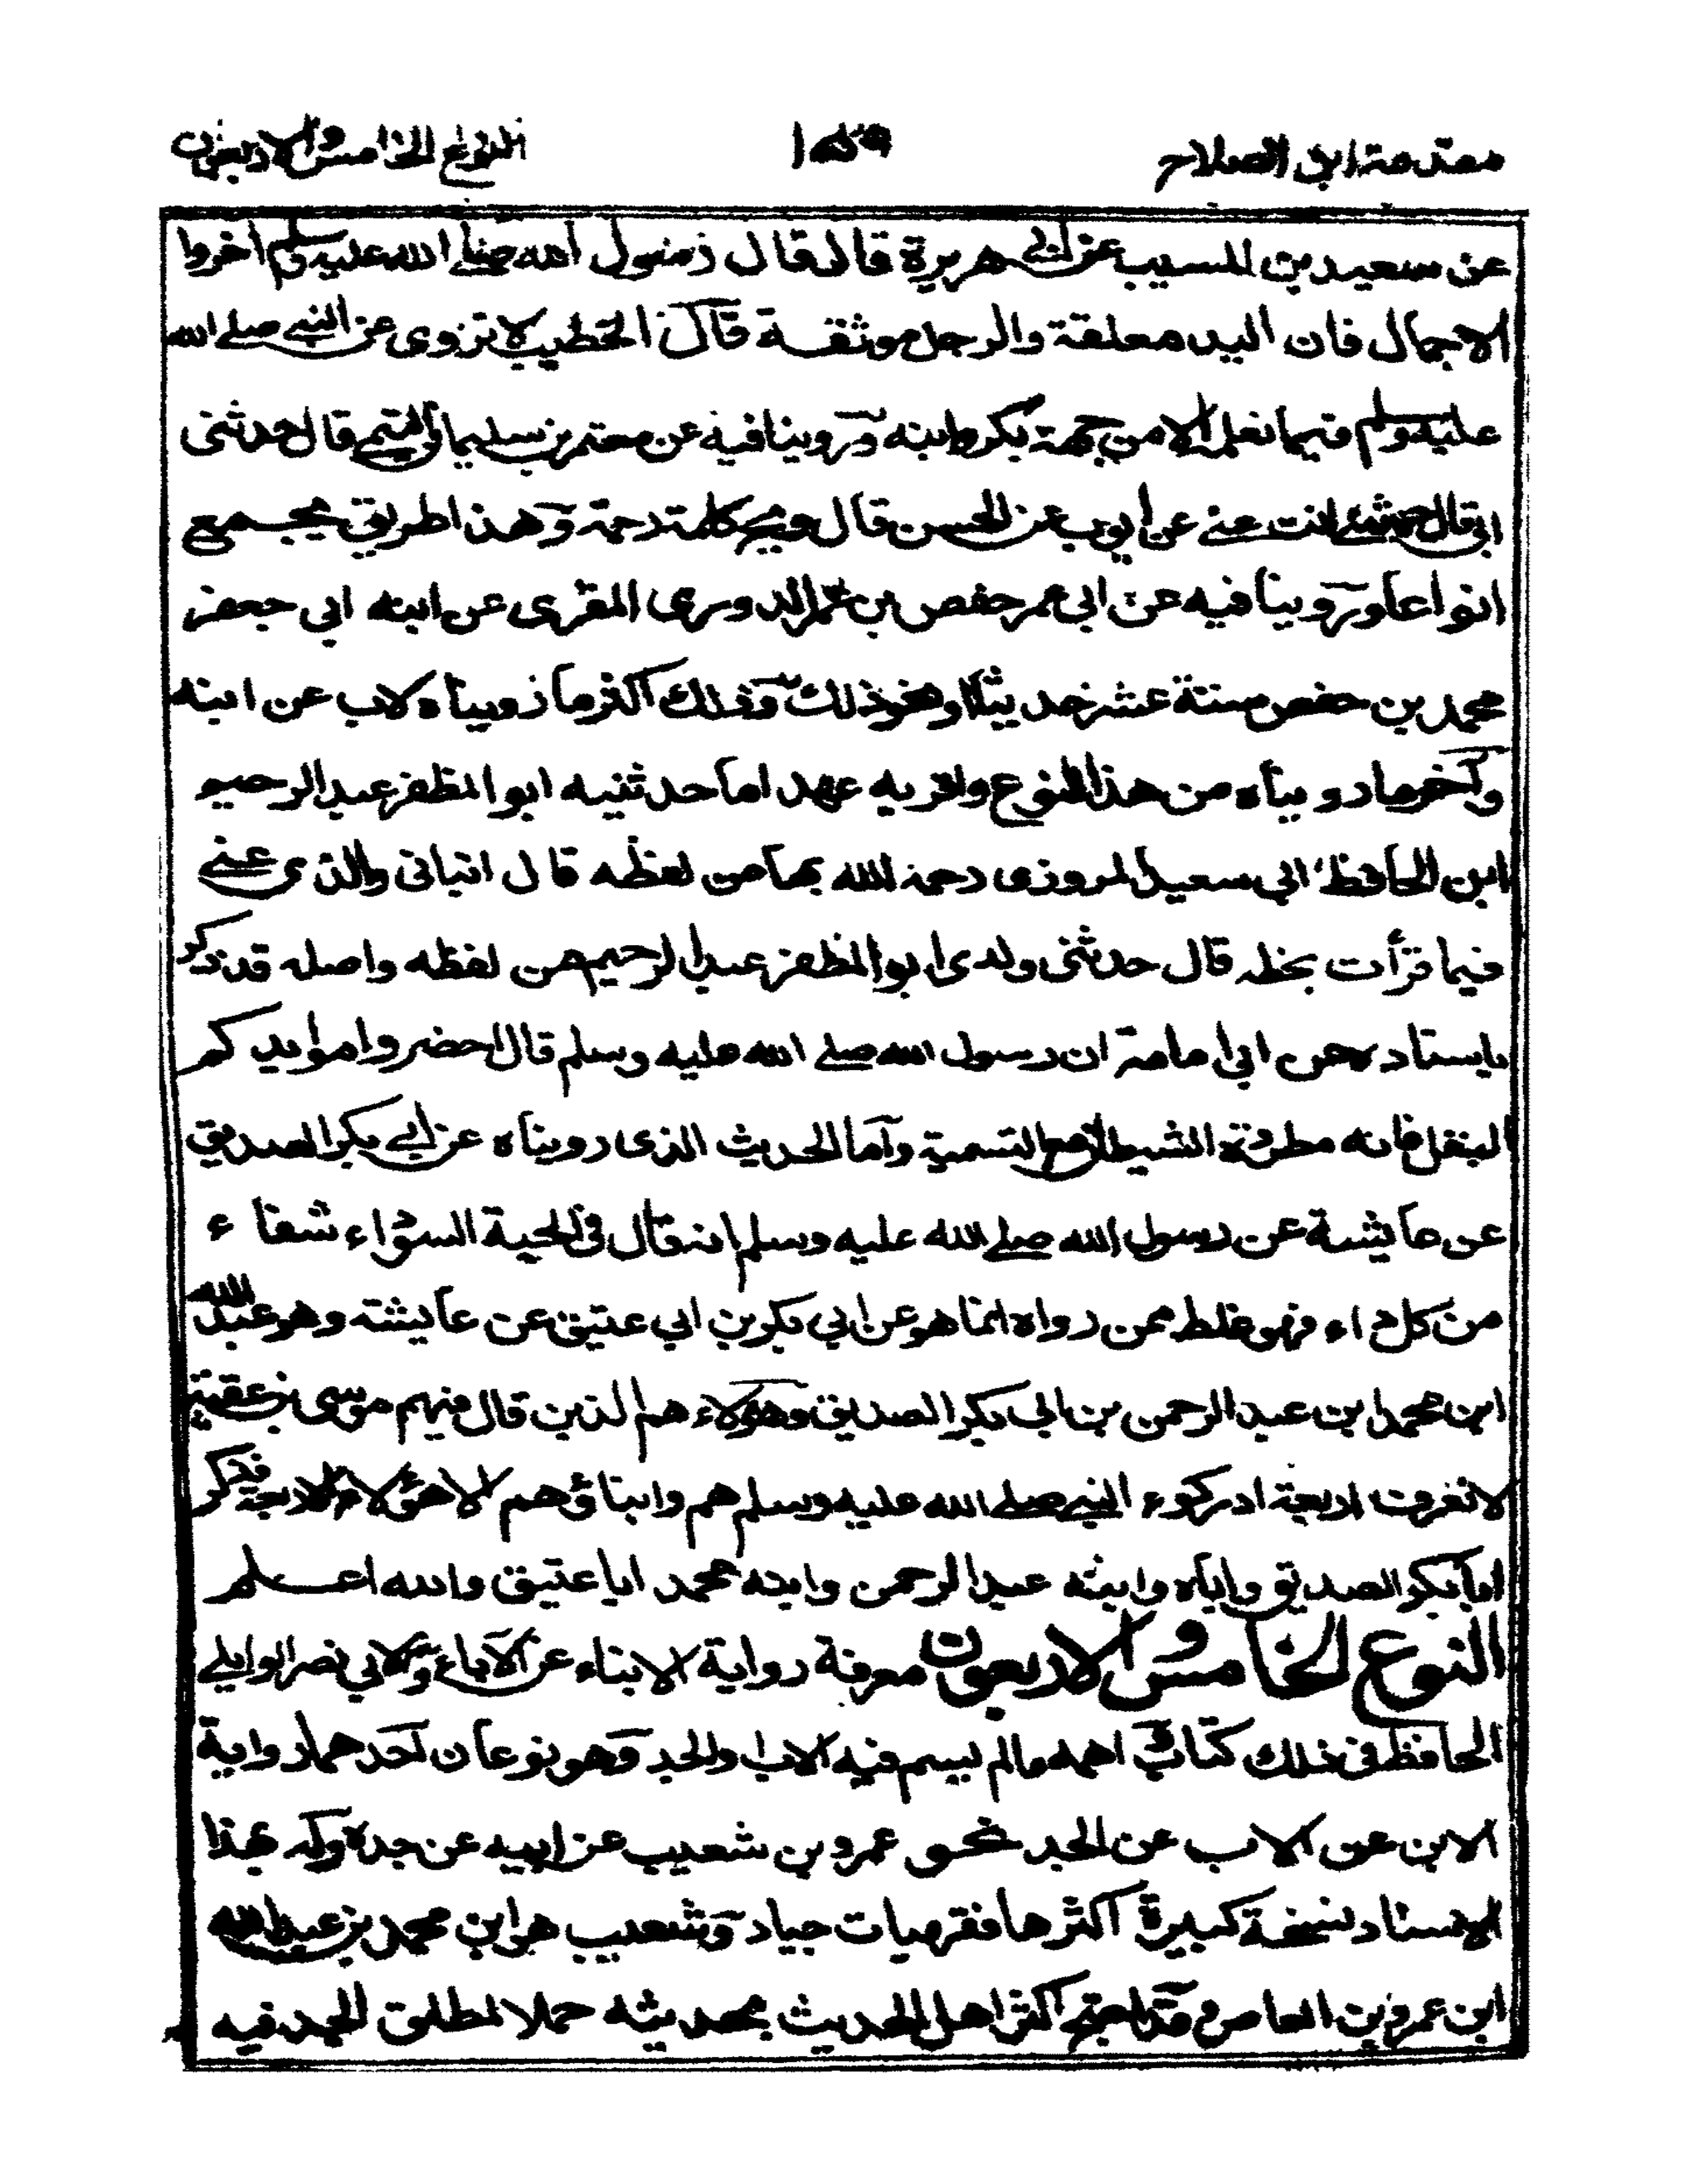 مقدمة ابن الصلاح
النوع الخامس والاربعون
عن سعيد بن المسيب عن ابي هريرة قال قال رسول الله صلى الله عليه وسلم اخروا
الاجمال فان اليد معلقة والرجل موثقة قال الخطيب لا تروى عن النبي صلى الله
عليه وسلم فيما نعلمه الا من جهة بكر وابنه وروينا فيه عن معتمر بن سليمان التيمي قال حدثني
ابي قال حدثتني انت عني عن ايوب عن الحسن قال ويح كلمة رحمة وهذا طريق يجمع
انواعا وروينا فيه عن ابي عمر حفص بن عمر الدوري المقرى عن ابنه ابي جعفر
محمد بن حفص ستة عشر حديثا او نحو ذلك وذلك اكثر ما رويناه لاب عن ابنه
وآخر ما رويناه من هذا النوع واقربه عهدا ما حدثنيه ابو المظفر عبد الرحيم
ابن الحافظ ابي سعيد المروزى رحمة الله بها من لفظه قال انبانى والدى عني
فيما قرأت بخطه قال حدثنى ولدى ابو المظفر عبد الرحيم من لفظه واصله فذكر
باسناده عن ابي امامة ان رسول الله صلى الله عليه وسلم قال احضروا موايدكم
البقل فانه مطردة الشيطان مع التسمية وأما الحديث الذى رويناه عن ابي بكر الصديق
عن عايشة عن رسول الله صلى الله عليه وسلم انه قال في الحبة السوداء شفاء
من كل داء فهو غلط ممن رواه انما هو عن ابي بكر بن ابي عتيق عن عايشة وهو عبد الله
ابن محمد ابن عبد الرحمن بن ابى بكر الصديق وهؤلاء هم الذين قال فيهم موسى بن عقبة
لا نعرف اربعة ادركوا النبي صلى الله عليه وسلم هم وابناؤهم الا هؤلاء الاربعة فذكر
ابا بكر الصديق واباه وابنه عبد الرحمن وابنه محمد ابا عتيق والله اعلم
النوع الخامس والاربعون معرفة رواية الابناء عن الآباء ولابي نصر الوايلى
الحافظ فى ذلك كتاب اهمه ما لم يسم فيه الاب والجد وهو نوعان احدهما رواية
الابن عن الاب عن الجد نحو عمرو بن شعيب عن ابيه عن جده وله بهذا
الاسناد نسخة كبيرة اكثرها فقهيات جياد وشعيب هو ابن محمد بن عبد الله
ابن عمرو بن العاص وقد احتج اكثر اهل الحديث بحديثه حملا لمطلق الجد فيه